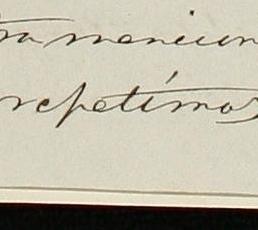 tra mencion
repetímos